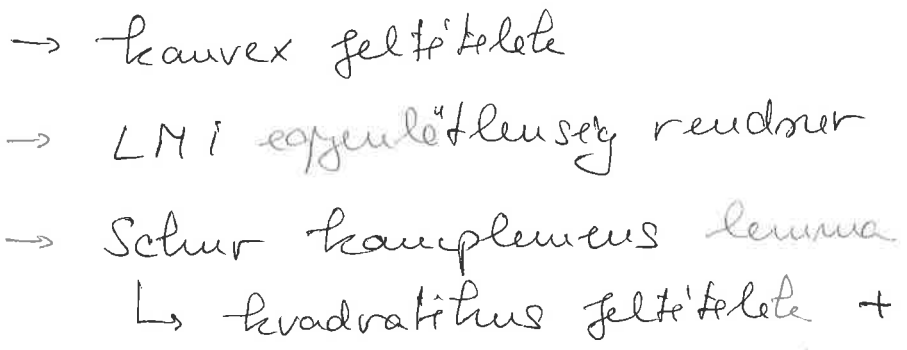 → konvex feltétele
→ LMI egyenlőtlenség rendszer
→ Schur komplemens lemma
↳ kvadratikus feltétele +